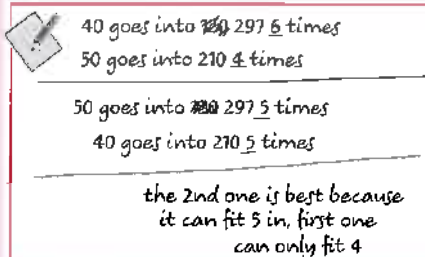 40 goes into 297 6 times
50 goes into 210 4 times
50 goes into 297 5 times
40 goes into 210 5 times
the 2nd one is best because
it can fit 5 in, first one
can only fit 4